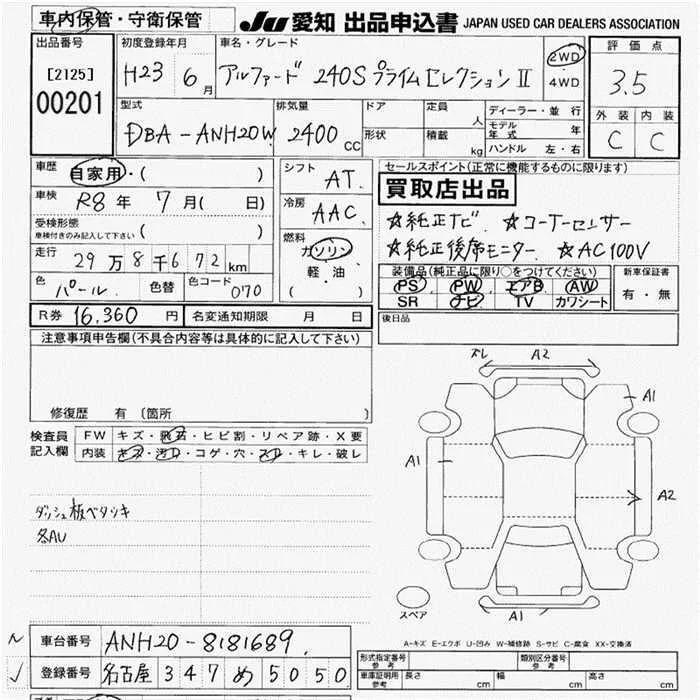 車内保管・守衛保管
JU 愛知 出品申込書 JAPAN USED CAR DEALERS ASSOCIATION
出品番号
[2125]
00201
初度登録年月
H23 6月
車名・グレード
アルファード 240S プライムセレクションⅡ
2WD
4WD
評価点
3.5
外装 内装
C C
型式
DBA-ANH20W
排気量
2400 CC
ドア
形状
定員 人
積載 kg
ディーラー・並行
モデル年式 年
ハンドル 左・右
車歴 自家用・( )
車検 R8年 7月( 日)
受検形態
車検付きのみ記入して下さい ( )
走行 29万8千672km
色 パール.
色替
色コード 070
シフト
AT.
冷房
AAC.
燃料
ガソリン
軽・油
( )
セールスポイント(正常に機能するものに限ります)
買取店出品
☆純正ナビ ☆コーナーセンサー
☆純正後席モニター ☆AC100V
装備品(純正品に限り○をつけてください)
PS PW エアB AW
SR ナビ TV カワシート
新車保証書
有・無
R券 16,360円
名変通知期限 月 日
後日品
注意事項申告欄(不具合内容等は具体的に記入して下さい)
修復歴 有(箇所 )
検査員記入欄
FW キズ・飛石・ヒビ割・リペア跡・X要
内装 キズ・汚れ・コゲ・穴・スレ・キレ・破レ
ダッシュ板ベタツキ
各AU
スレ A2
A1
A1
A2
A1
スペア
A-キズ E-エクボ U-凹み W-補修跡 S-サビ C-腐食 XX-交換済
車台番号 ANH20-8181689.
登録番号 名古屋 347 め 5050
形式指定番号 参考
類別区分番号 参考
車庫証明用 参考 長さ cm 幅 cm 高さ cm